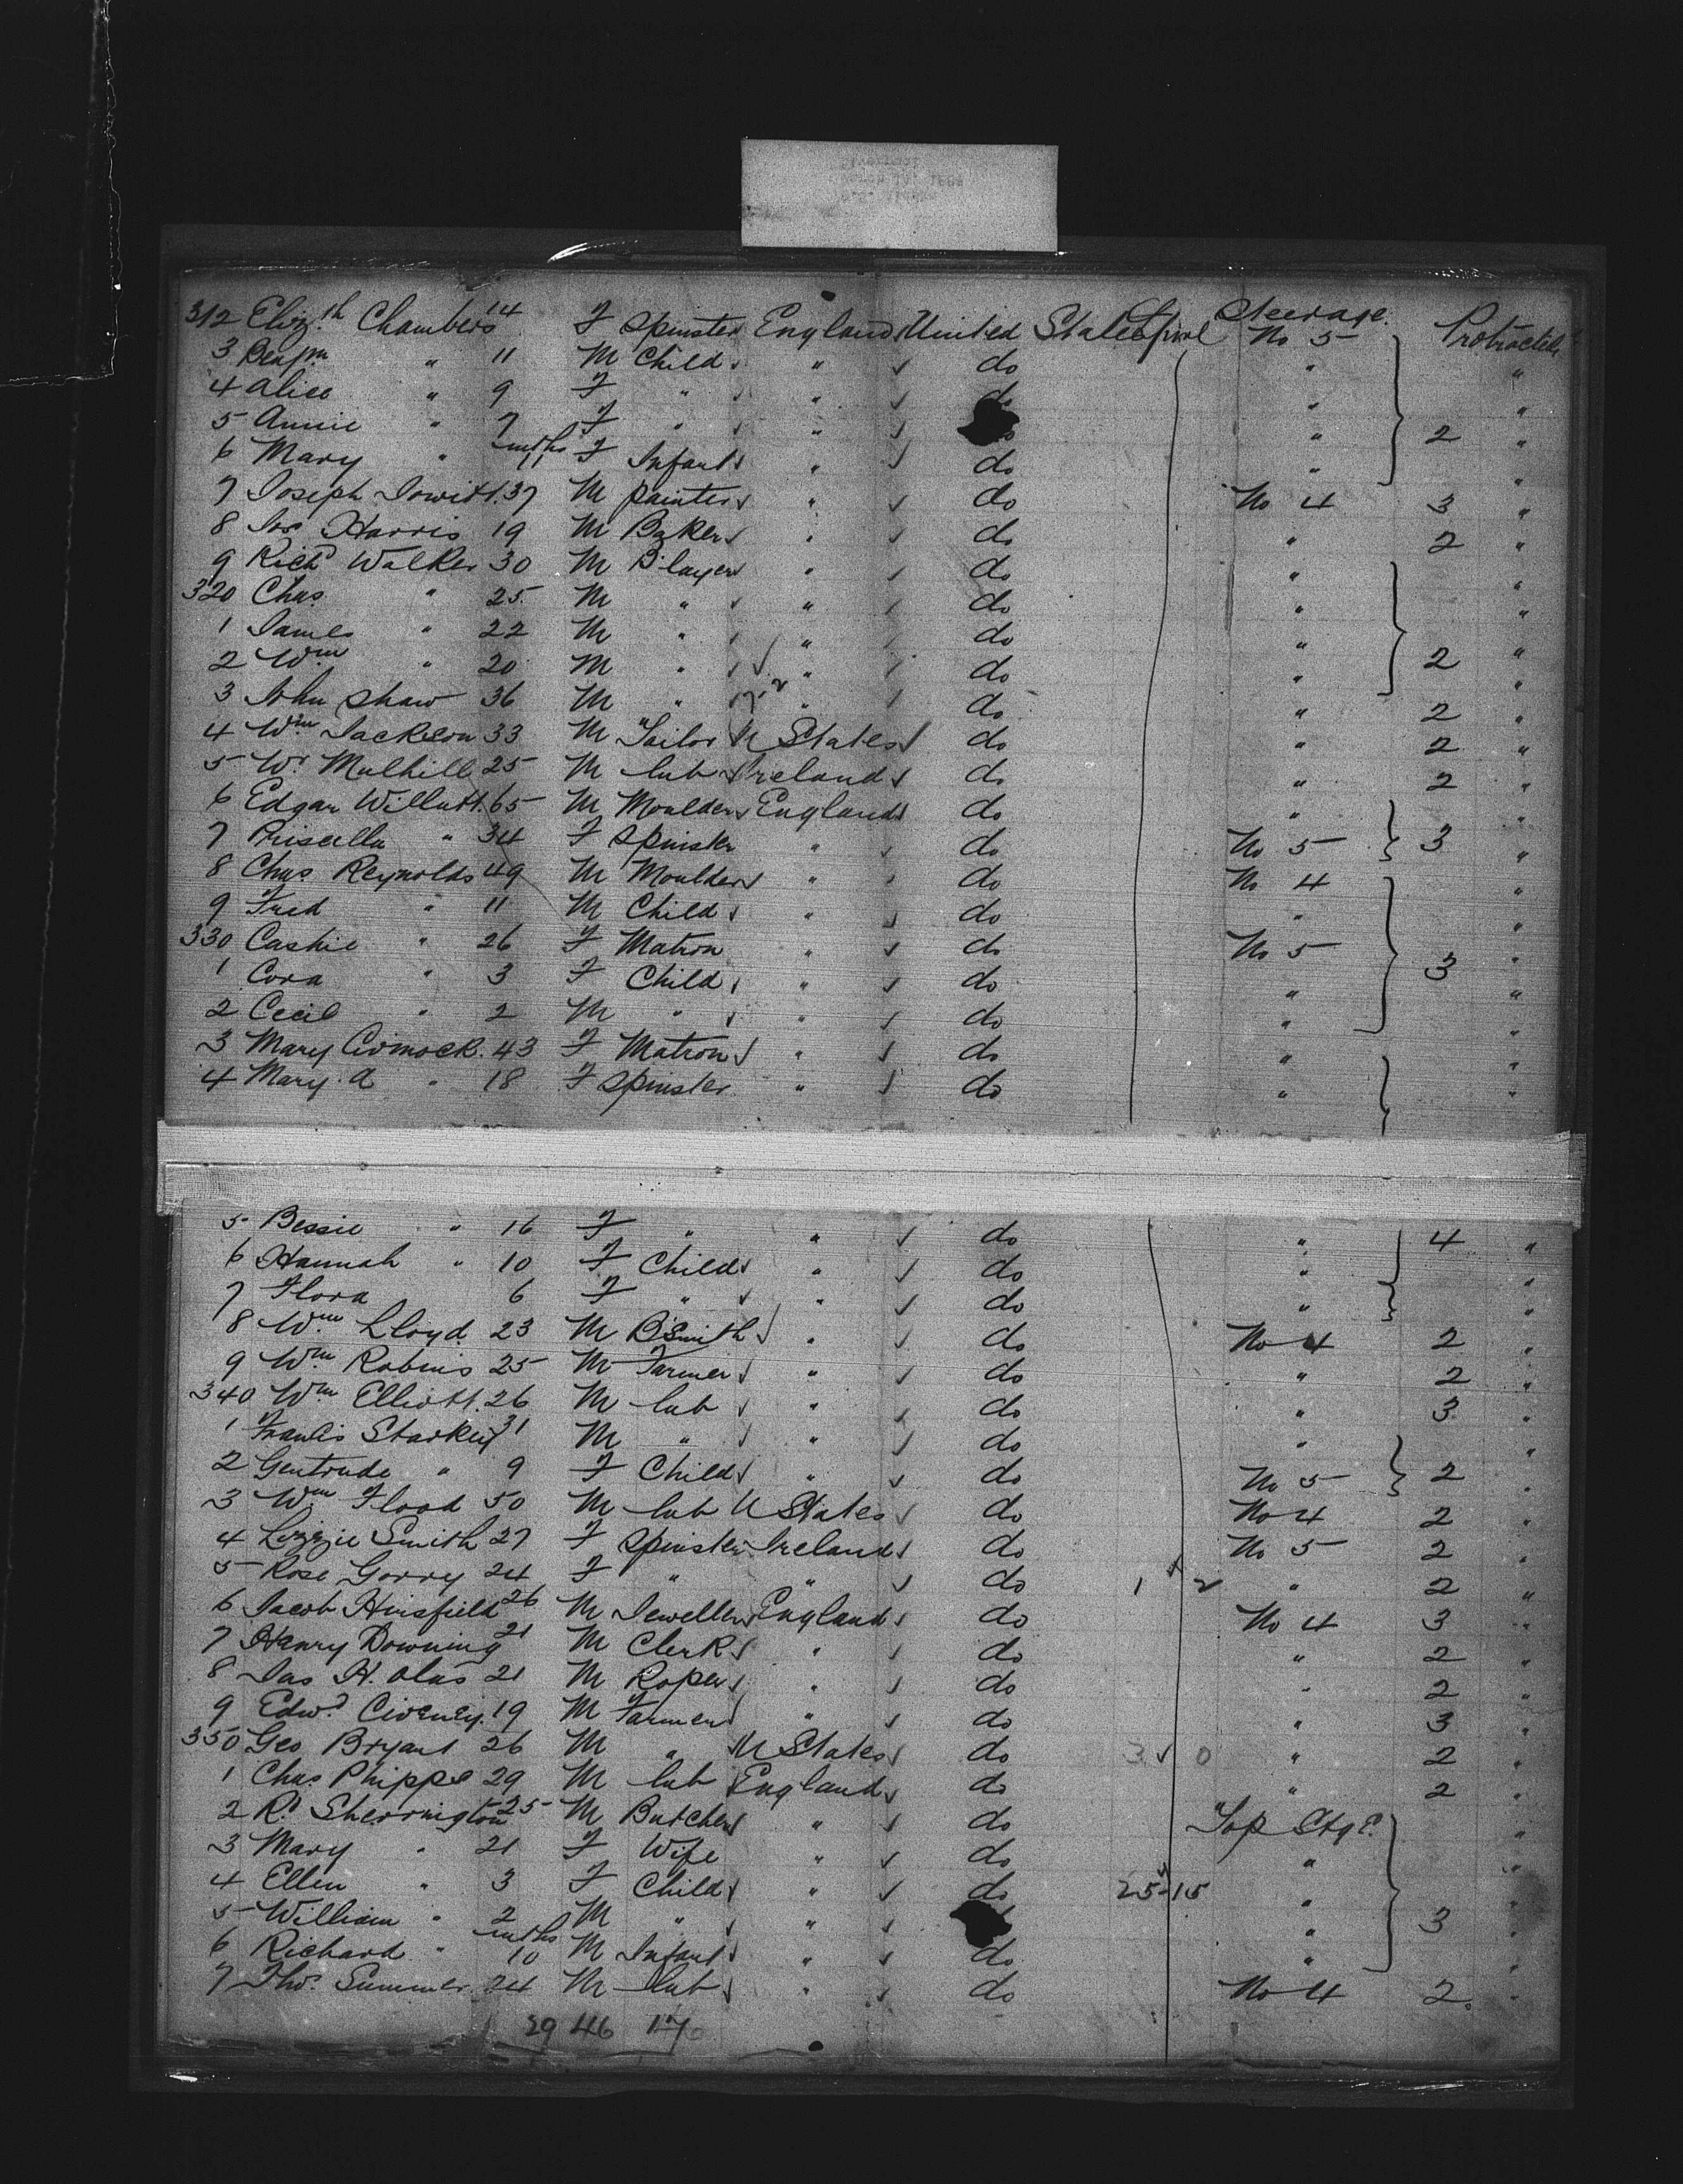 312 Eliz.th Chambers 14 F Spinster England United States Steerage No 5 Protracted
3 Benjm " 11 M Child " do " "
4 Alice " 9 F " " do " "
5 Annie " 7 F " " " 2 "
6 Mary " mths 11 F Infant " do " "
7 Joseph Jowitt. 37 M painter " do No 4 3 "
8 Jos Harris 19 M Baker " do " 2 "
9 Richd Walker 30 M B'layer " do " "
320 Chas. " 25 M " " do " "
1 James " 22 M " " do " "
2 Wm " 20 M " " do " 2 "
3 John Shaw 36 M " " do " 2 "
4 Wm Jackson 33 M Tailor U States do " 2 "
5 Wm Mulhill 25 M lab Ireland do " 2 "
6 Edgar Willutt. 65 M Moulder England do " "
7 Priscilla " 34 F Spinster " do No 5 3 "
8 Chas Reynolds 49 M Moulder " do No 4 "
9 Fred " 11 M Child " do " "
330 Cashie " 26 F Matron " do No 5 "
1 Cora " 3 F Child " do " 3 "
2 Cecil " 2 M " " do " "
3 Mary 43 F Matron " do " "
4 Mary. A " 18 F Spinster " do " "
5 Bessie " 16 F " " do " 4 "
6 Hannah " 10 F Child " do " "
7 Flora 6 F " " do " "
8 Wm Lloyd. 23 M BSmith " do No 4 2 "
9 Wm Robins 25 M Farmer " do " 2 "
340 Wm Elliott. 26 M lab " do " 3 "
1 Francis Starkey 31 M " " do " "
2 Gertrude " 9 F Child " do No 5 2 "
3 Wm Flood 50 M lab U States do No 4 2 "
4 Lizzie Smith 27 F Spinster Ireland do No 5 2 "
5 Rose Gorry 24 F " " do 1 2 " 2 "
6 Jacob Hinsfield 26 M Jeweller England do No 4 3 "
7 Henry Downing 21 M Clerk " do " 2 "
8 Jas H. Olas 21 M Roper " do " 2 "
9 Edwd Civeney. 19 M Farmer " do " 3 "
350 Geo Bryant 26 M " U States do 3 0 " 2 "
1 Chas Phipps 29 M lab England do " 2 "
2 Rd Sherrington 25 M Butcher " do Top Stge. "
3 Mary " 21 F Wife " do " "
4 Ellen " 3 F Child " do 25-15 " "
5 William " 2 M " " " 3 "
6 Richard " mths 10 M Infant " do " "
7 Tho. Summer 24 M lab " do No 4 2. "
29 46 17